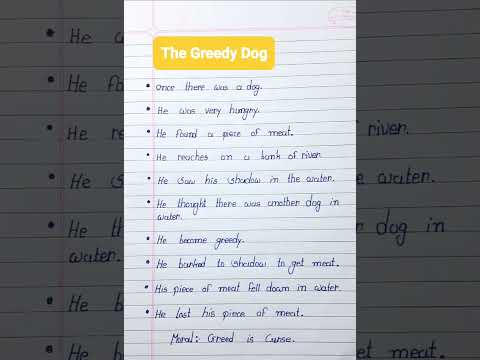 The Greedy Dog
• Once there was a dog.
• He was very hungry.
• He found a piece of meat.
• He reaches on a bank of river.
• He saw his shadow in the water.
• He thought there was another dog in
water.
• He become greedy.
• He barked to shadow to get meat.
• His piece of meat fell down in water.
• He lost his piece of meat.
Moral: Greed is Curse.